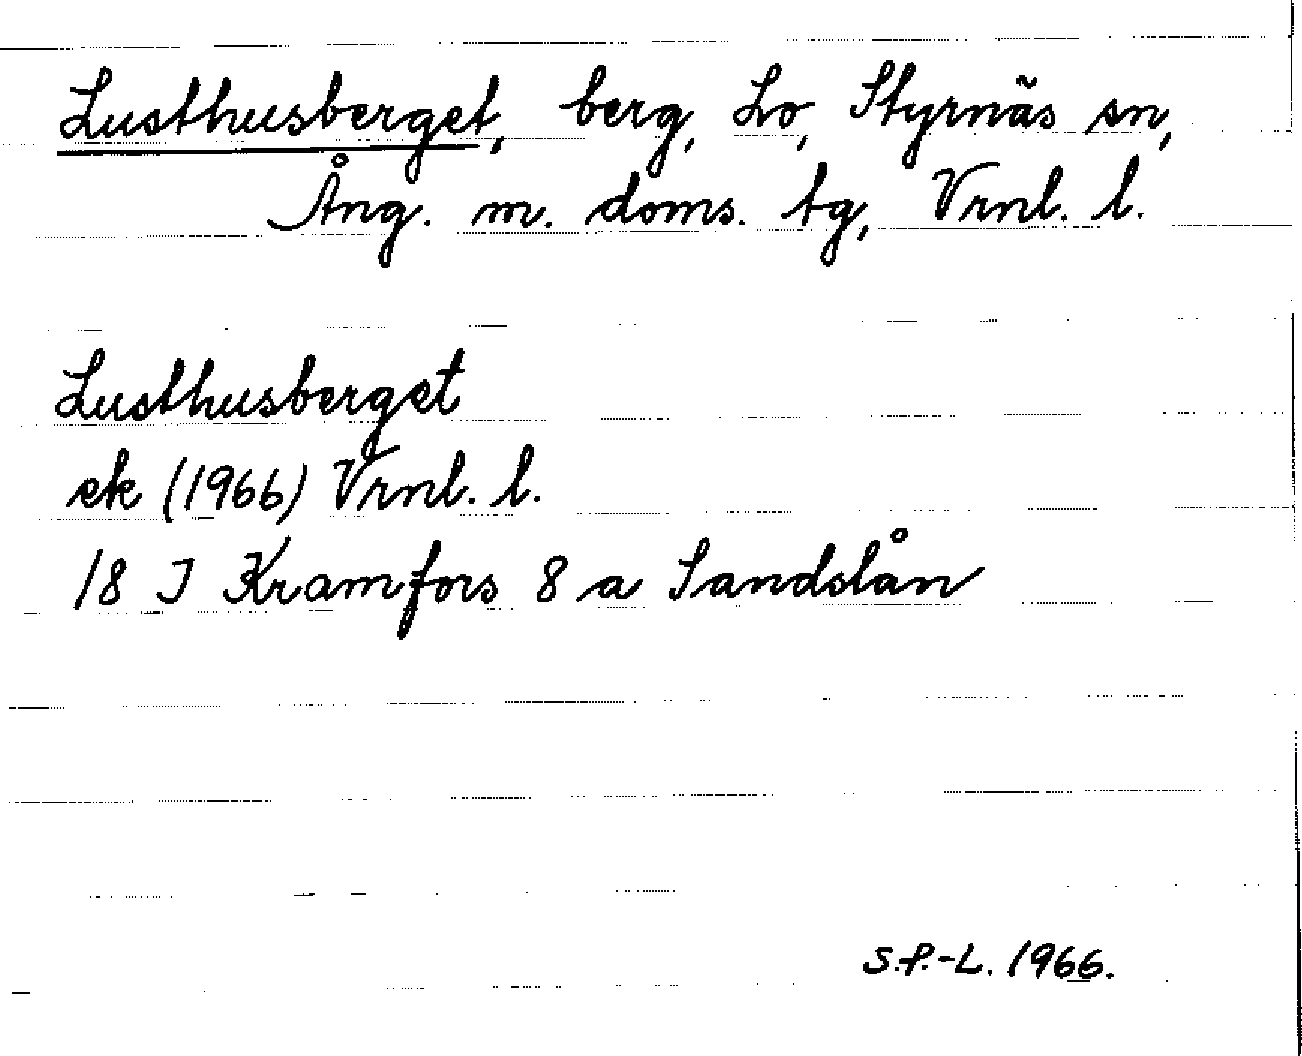 Lusthusberget, berg, Lo, Styrnäs sn,
Ång. m. doms. tg, Vrnl. l.
Lusthusberget
ek (1966) Vrnl. l.
18 I Kramfors 8 a Sandslån
S.P.-L. 1966.